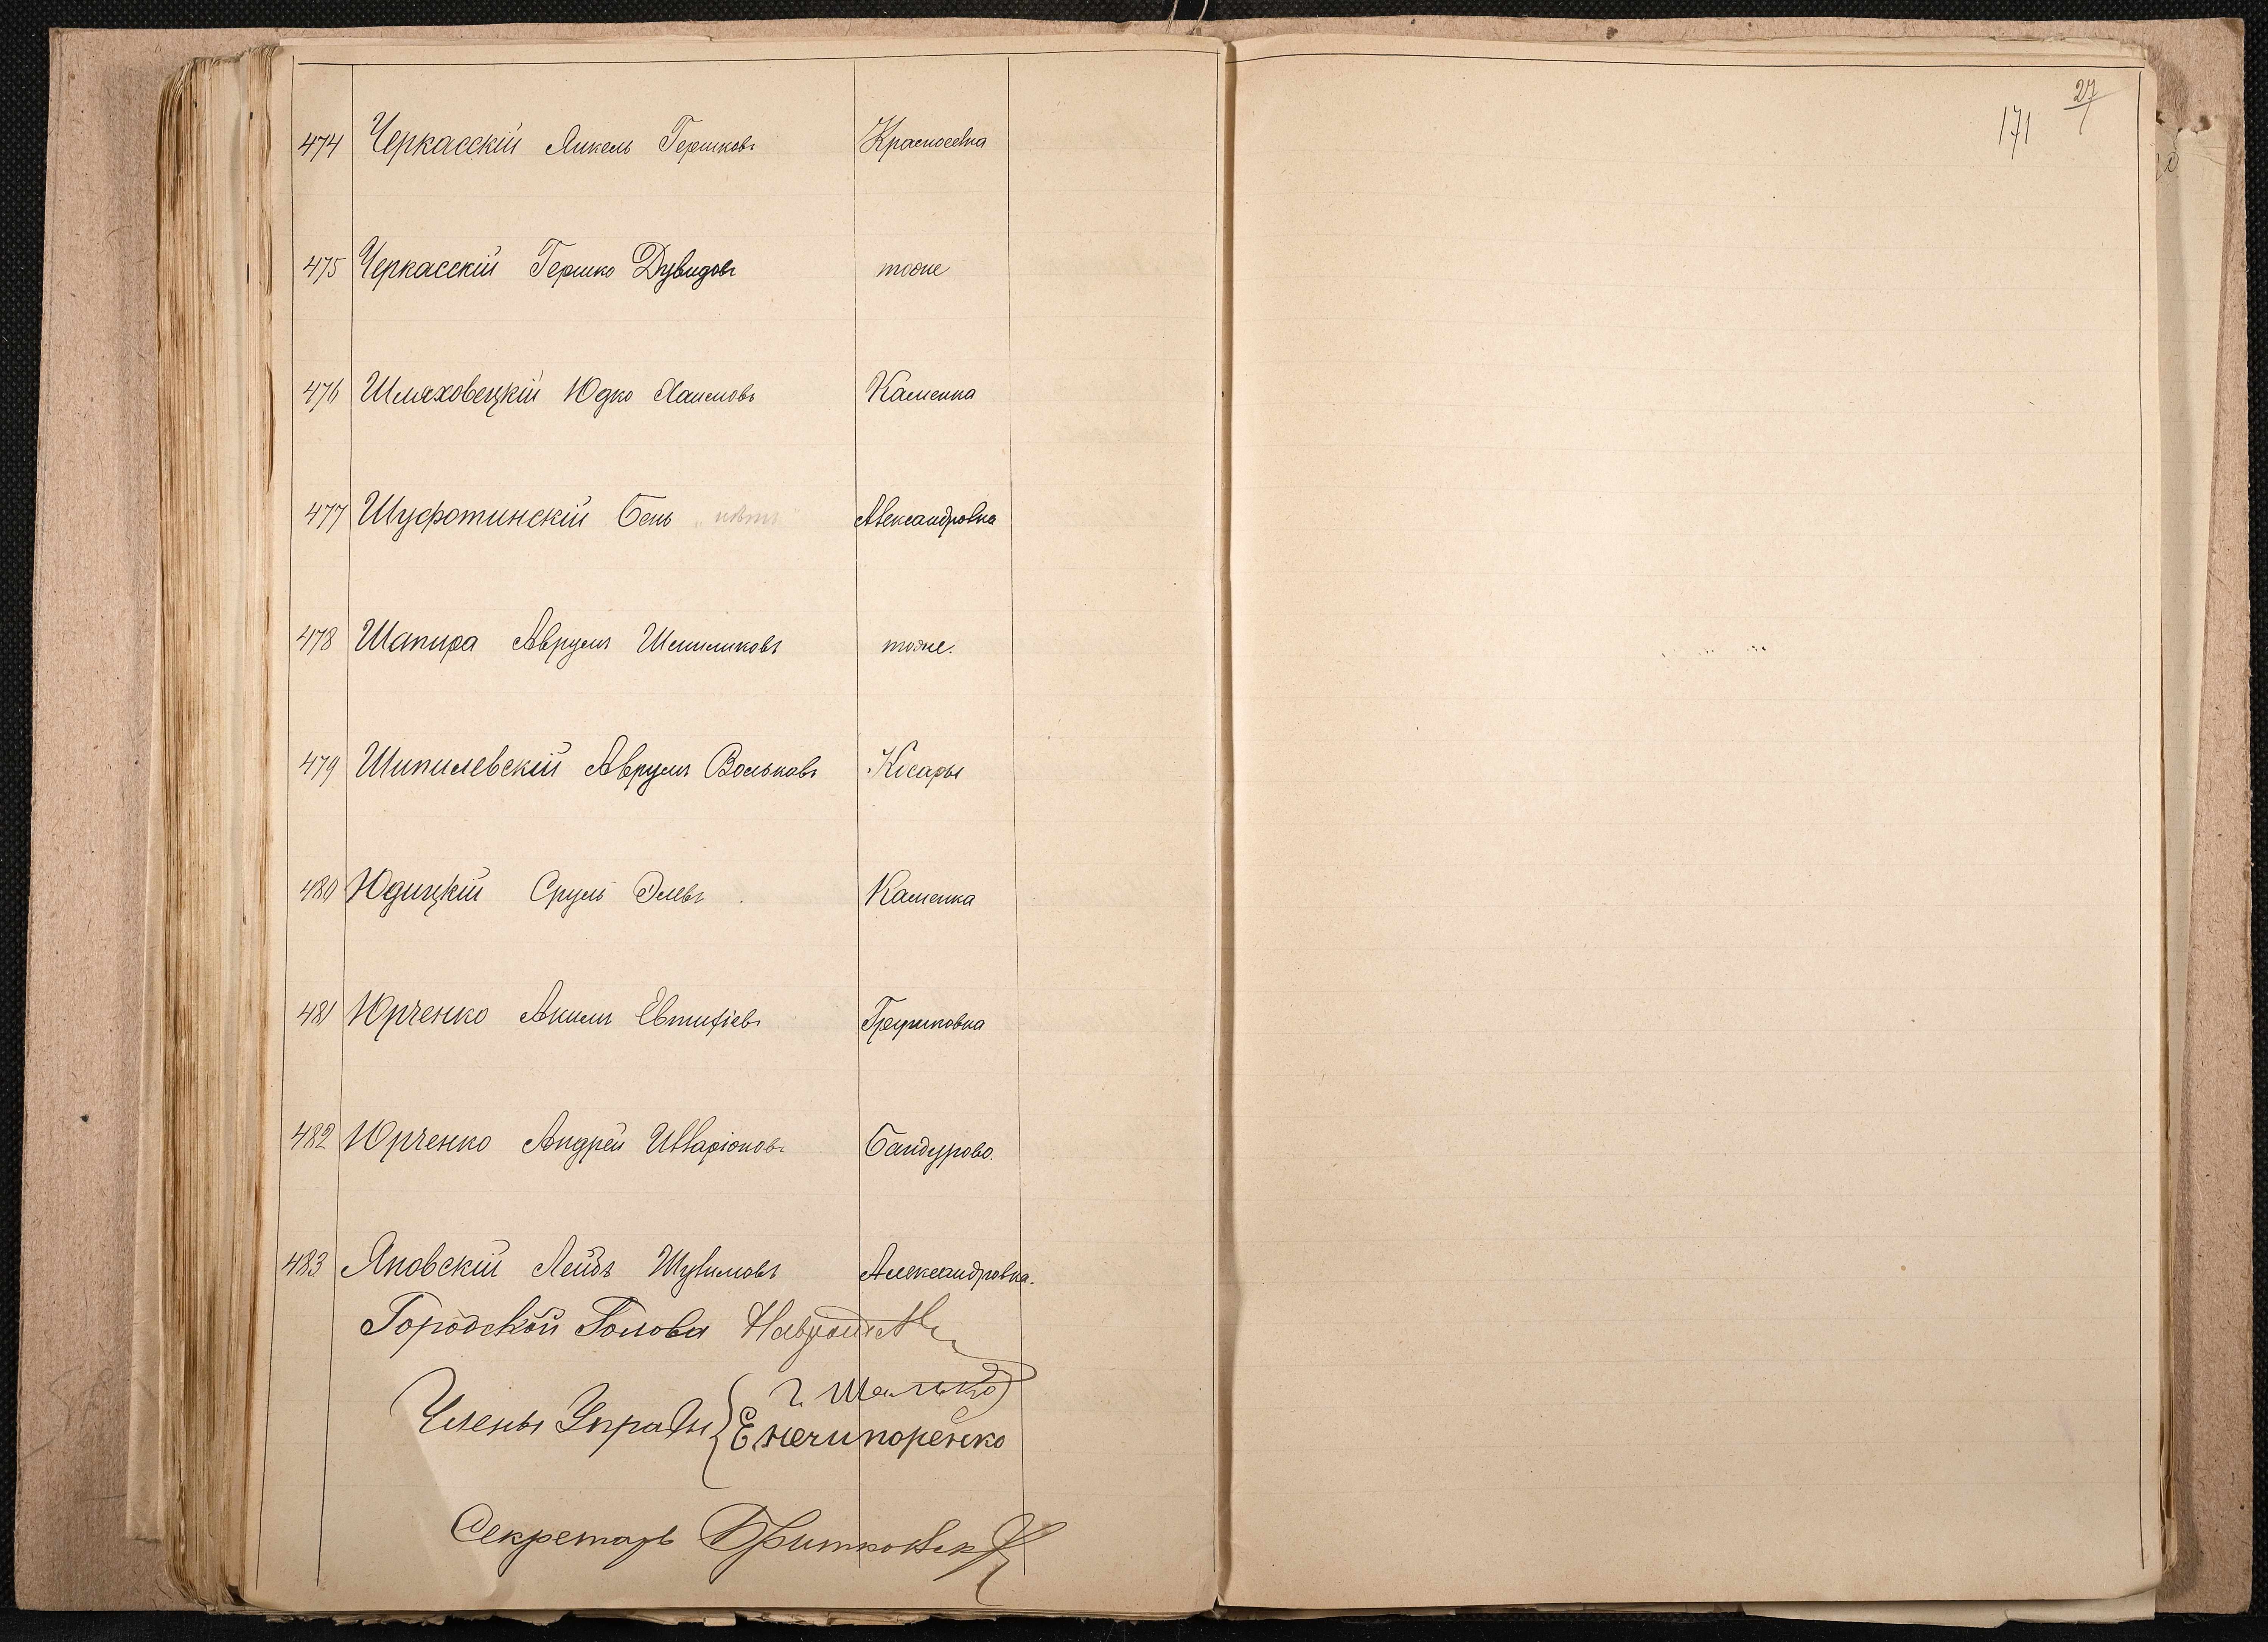 474 Черкасскій Янкель Гершковъ Красноселка
475 Черкасскій Гершко Дувидовъ тоже
476 Шляховецкій Юдко Хаимовъ Каменка
477 Шуфотинскій Бень „ нѣтъ Александровка
478 Шапира Аврумъ Шмиликовъ тоже.
479 Шипилевскій Аврумъ Вольковъ Косары
480 Юдицкій Сруль Элевъ Каменка
481 Юрченко Акимъ Евтифіевъ Грушковка
482 Юрченко Андрей Илларіоновъ Бандурово.
483 Яновскій Лейбъ Шулимовъ Александровка.
Городской Голова
Члены Управы
Е Нечипоренко
Секретарь
27
171